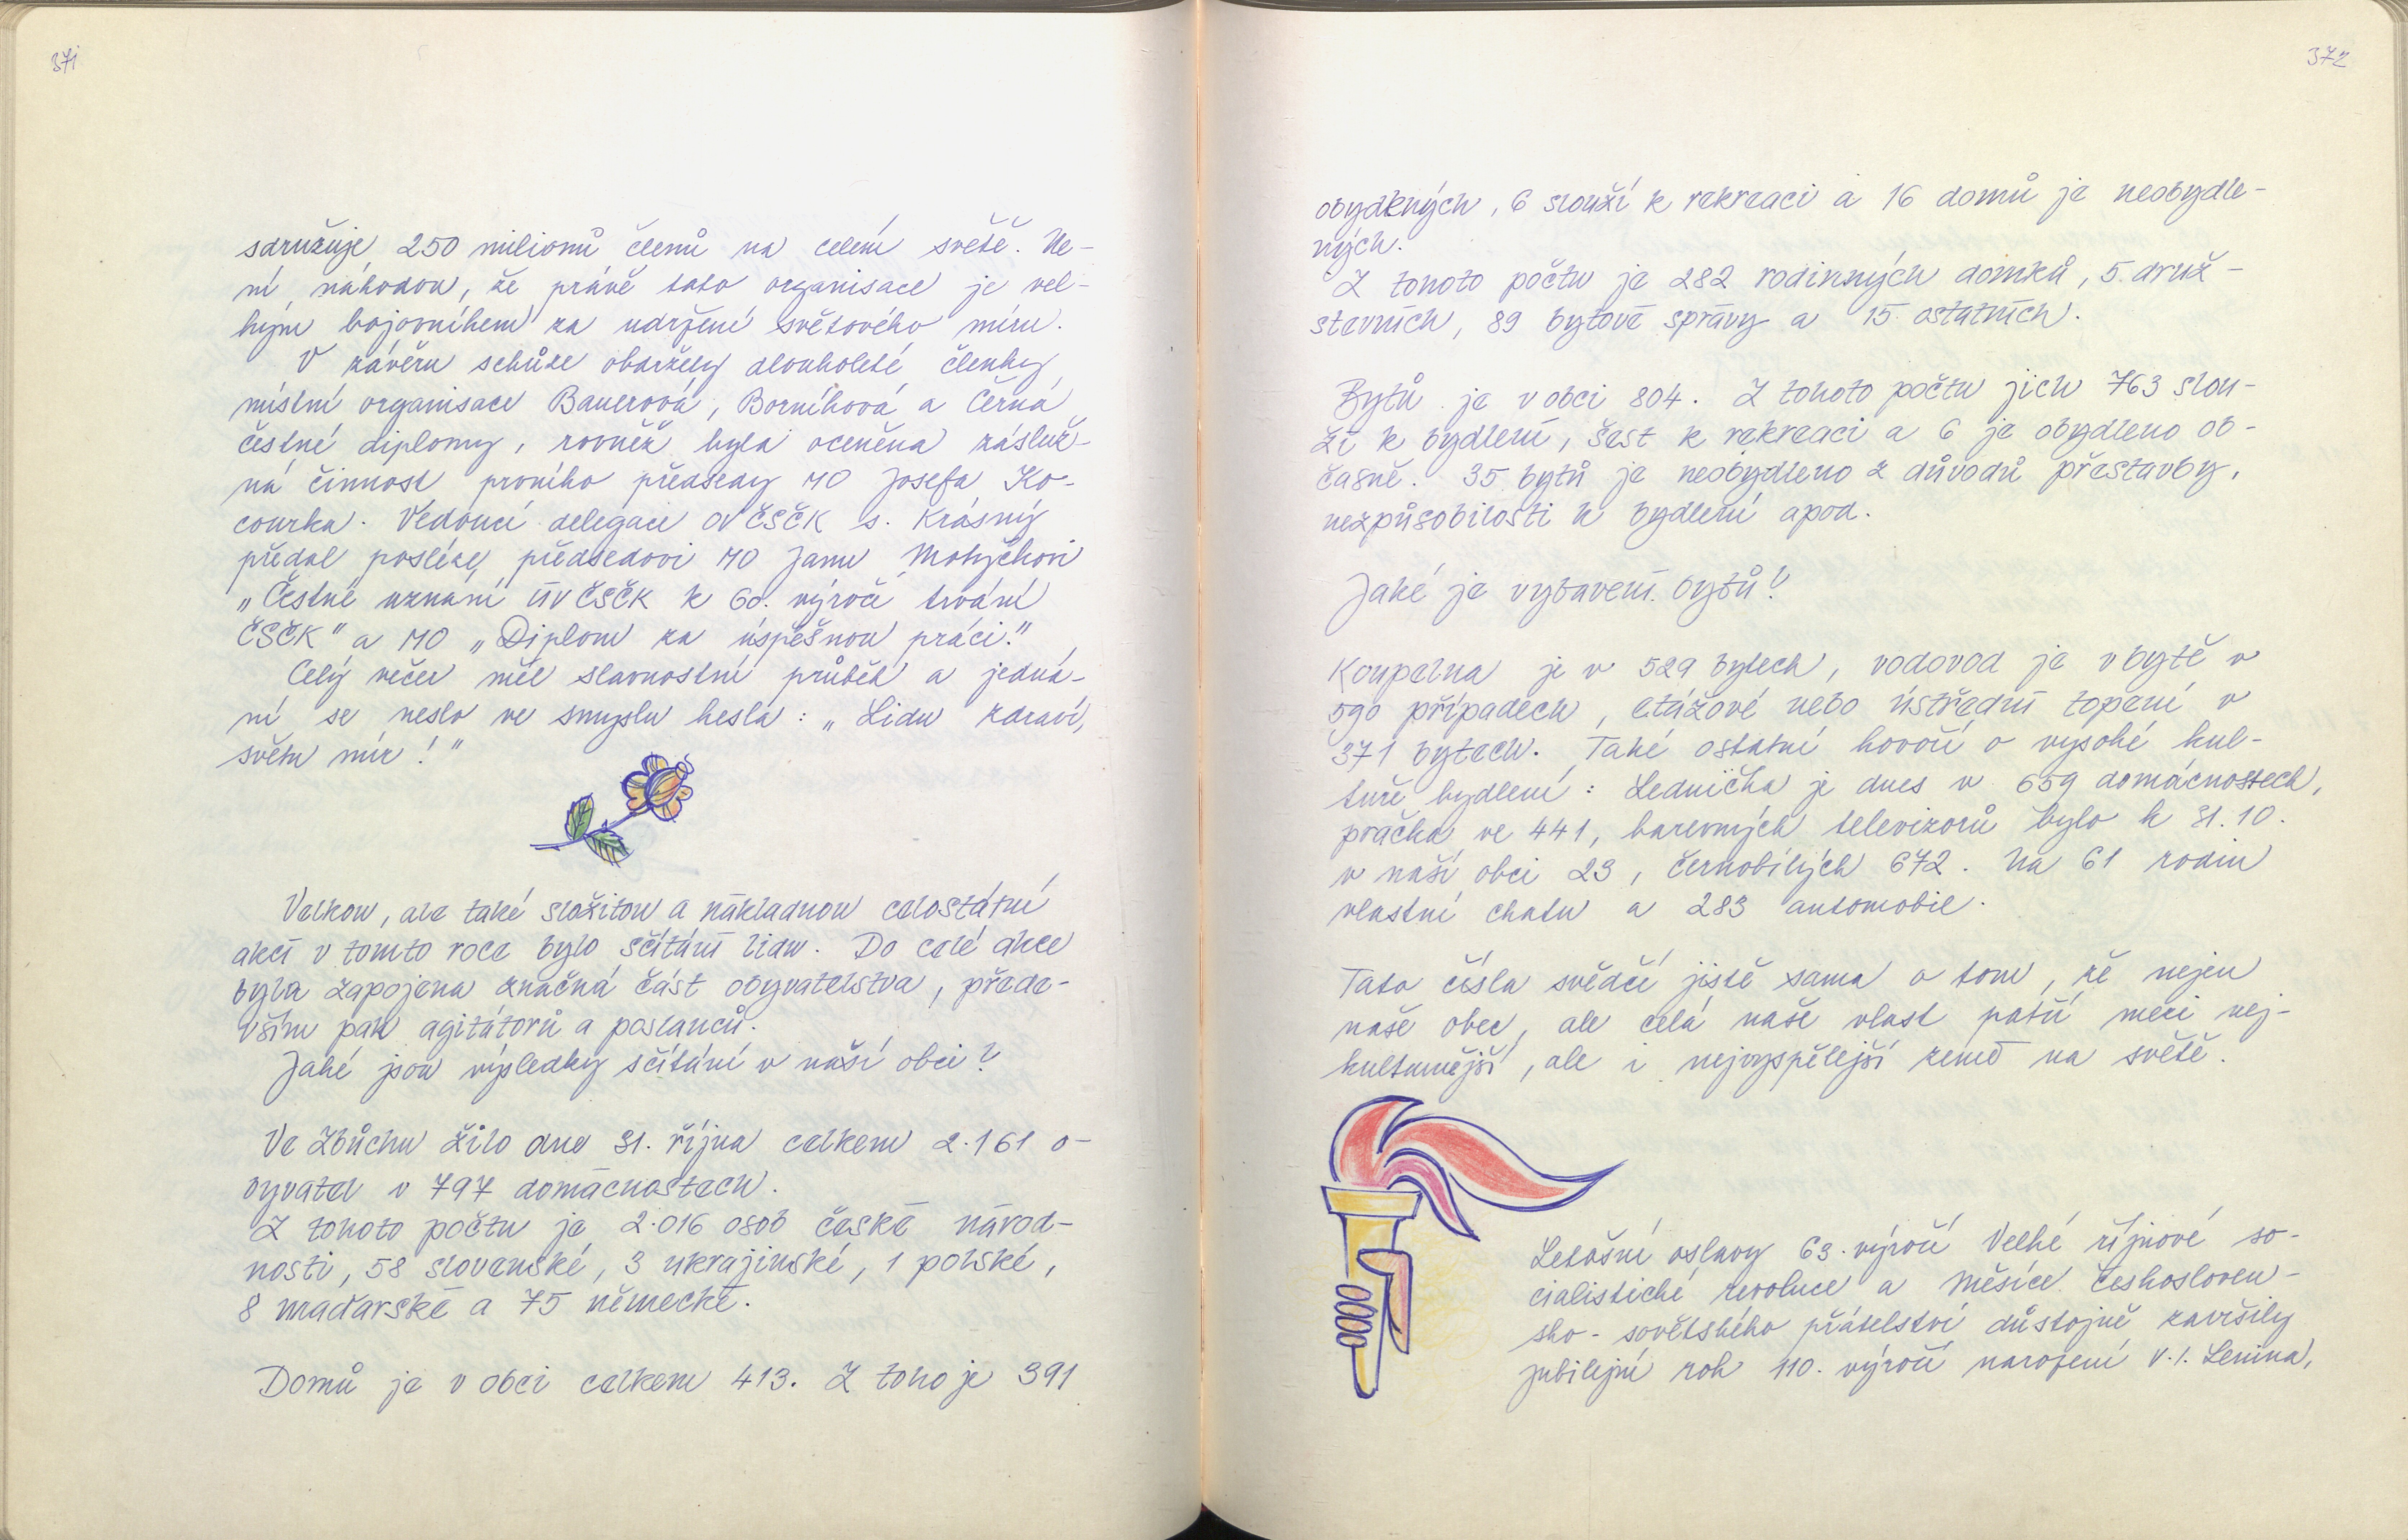 371
sdružuje 250 milionů členů na celém světě. Ne-
ní náhodou, že právě tato organisace je vel-
kým bojovníkem za udržení světového míru.
V závěru schůze obdržely dlouholeté členky
místní organisace Bauerová, Borníková a Černá
čestné diplomy, rovněž byla oceněna násluž-
ná činnost prvního předsedy MO Josefa Ko-
courka. Vedoucí delegace OV ČSČK s. Krásný
předal posléze předsedovi MO Janu Motyčkovi
„Čestné uznání ÚV ČSČK k 60. výročí trvání
ČSČK" a MO „Diplom za úspěšnou práci."
Celý večer měl slavnostní průběh a jedná-
ní se neslo ve smyslu hesla: „Lidu zdraví,
světu mír!"
Velkou, ale také složitou a nákladnou celostátní
akcí v tomto roce bylo sčítání lidu. Do celé akce
byla zapojena značná část obyvatelstva, přede-
vším pak agitátorů a poslanců.
Jaké jsou výsledky sčítání v naší obci?
Ve Zbůchu žilo dne 31. října celkem 2.161 o-
byvatel v 797 domácnostech.
Z tohoto počtu je 2.016 osob české národ-
nosti, 58 slovenské, 3 ukrajinské, 1 polské,
8 maďarské a 75 německé.
Domů je v obci celkem 413. Z toho je 391
372
obydlených, 6 slouží k rekreaci a 16 domů je neobydle-
ných.
Z tohoto počtu je 282 rodinných domků, 5 druž-
stevních, 89 bytové správy a 15 ostatních.
Bytů je v obci 804. Z tohoto počtu jich 763 slou-
ží k bydlení, šest k rekreaci a 6 je obydleno ob-
časně. 35 bytů je neobydleno z důvodů přestavby,
nezpůsobilosti k bydlení apod.
Jaké je vybavení bytů?
Koupelna je v 529 bytech, vodovod je v bytě v
590 případech, etážové nebo ústřední topení v
371 bytech. Také ostatní hovoří o vysoké kul-
tuře bydlení: Lednička je dnes v 659 domácnostech,
pračka ve 441, barevných televizorů bylo k 31.10.
v naší obci 23, černobílých 672. Na 61 rodin
vlastní chatu a 283 automobil.
Tato čísla svědčí jistě sama o tom, že nejen
naše obec, ale celá naše vlast patří mezi nej-
kulturnější, ale i nejvyspělejší země na světě.
Letošní oslavy 63. výročí Velké říjnové so-
cialistické revoluce a Měsíce českosloven-
sko-sovětského přátelství důstojně završily
jubilejní rok 110. výročí narození V.I. Lenina,